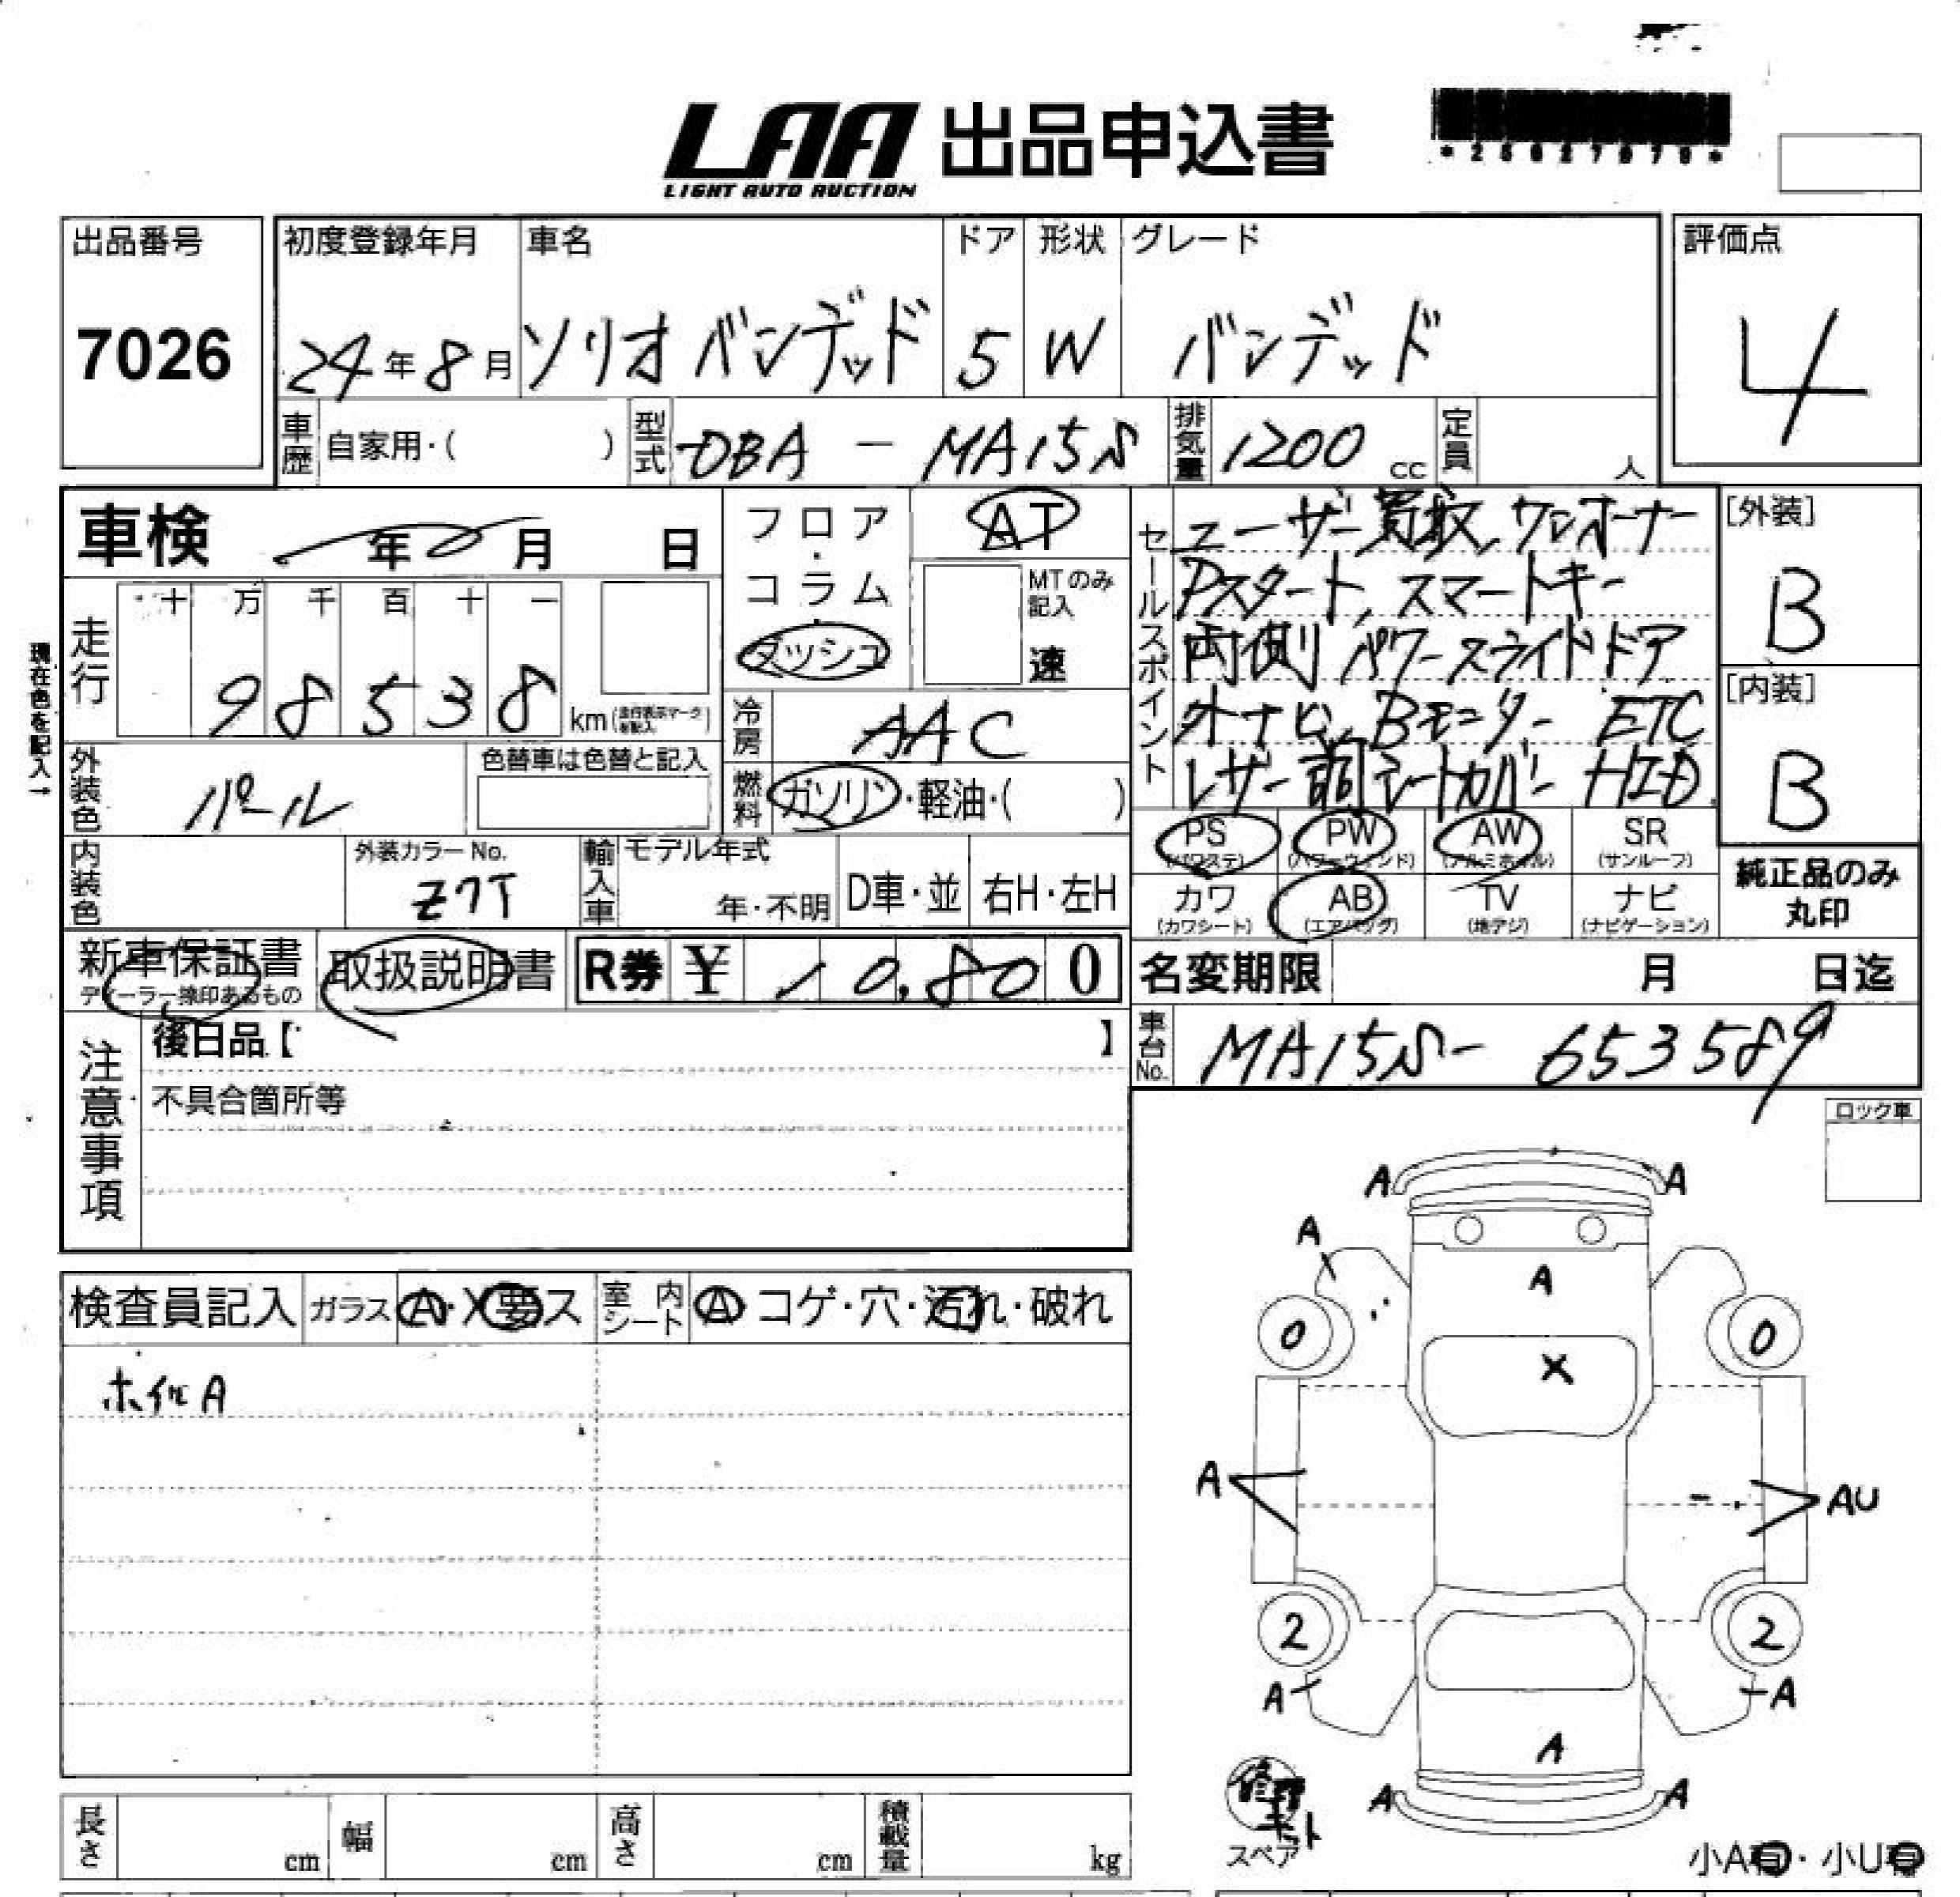 LAA 出品申込書
LIGHT AUTO AUCTION
出品番号
7026
初度登録年月
24年8月
車名
ソリオ バンデッド
ドア
5
形状
W
グレード
バンデッド
評価点
4
車歴
自家用・( )
型式
DBA - MA15S
排気量
1200 cc
定員
人
車検
年 月 日
フロア・コラム・ダッシュ
AT
MTのみ記入
速
走行
十 万 千 百 十 一
98538 km
現在色を記入→
冷房
AAC
外装色
パール
色替車は色替と記入
燃料
ガソリン・軽油・( )
内装色
外装カラーNo.
Z7T
輸入車
モデル年式
年・不明
D車・並
右H・左H
セールスポイント
ユーザー買取、ワンオーナー
Pスタート、スマートキー
両側パワースライドドア
オナビ、Bモニター ETC
レザー調シートカバー HID
[外装]
B
[内装]
B
PS PW AW SR
(パワステ) (パワーウィンド) (アルミホイル) (サンルーフ)
カワ AB TV ナビ
(カワシート) (エアバッグ) (地デジ) (ナビゲーション)
純正品のみ
丸印
新車保証書
ディーラー捺印あるもの
取扱説明書
R券 ¥ 10,800
名変期限 月 日迄
車台No.
MA15S- 653589
注意事項
後日品【 】
不具合箇所等
ロック車
検査員記入
ガラス A・X要ス
室内シート A コゲ・穴・汚れ・破れ
ホイルA
A A
A
A
0 0
X
A AU
2 2
A A
A
A A
修理キット
スペア
小A有・小U有
長さ cm
幅 cm
高さ cm
積載量 kg